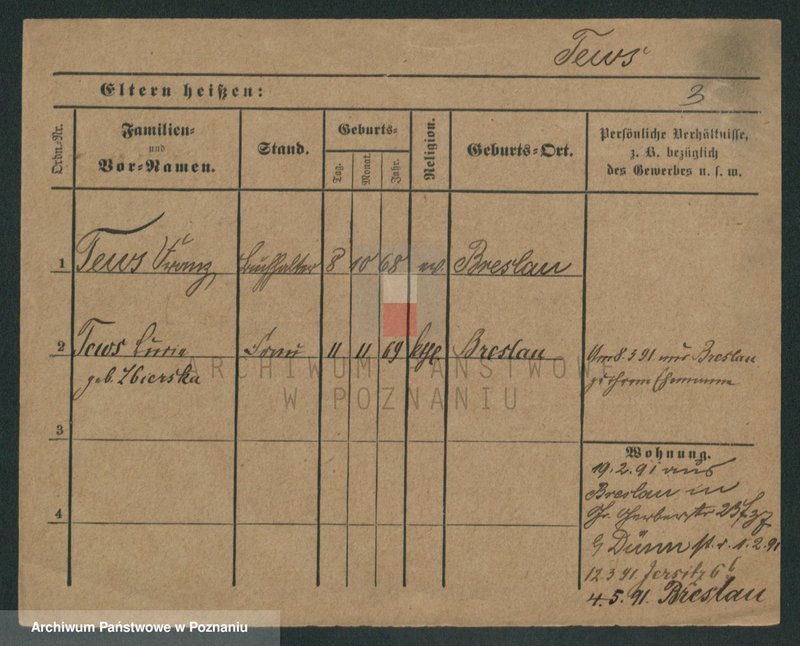 Tews
3
Eltern heißen:
Ordn.-Nr.
Familien-
und
Vor-Namen.
Stand.
Geburts-
Tag.
Monat.
Jahr.
Religion.
Geburts-Ort.
Persönliche Verhältnisse,
z. B. bezüglich
des Gewerbes u. s. w.
1 Tews Franz Buchhalter 8 10 68 ev. Breslau
2 Tews Frau 11 11 69 Breslau
geb. Zbierska
8.3.91 aus Breslau
zu ihrem Ehemann
ARCHIWUM PAŃSTWOWE
W POZNANIU
3
Wohnung.
19.2.91 aus
Breslau in
Gr. Gerberstr 23
4
Dümm 1.2.91
12 3 91 Jersitz 66
4.5.91. Breslau
Archiwum Państwowe w Poznaniu